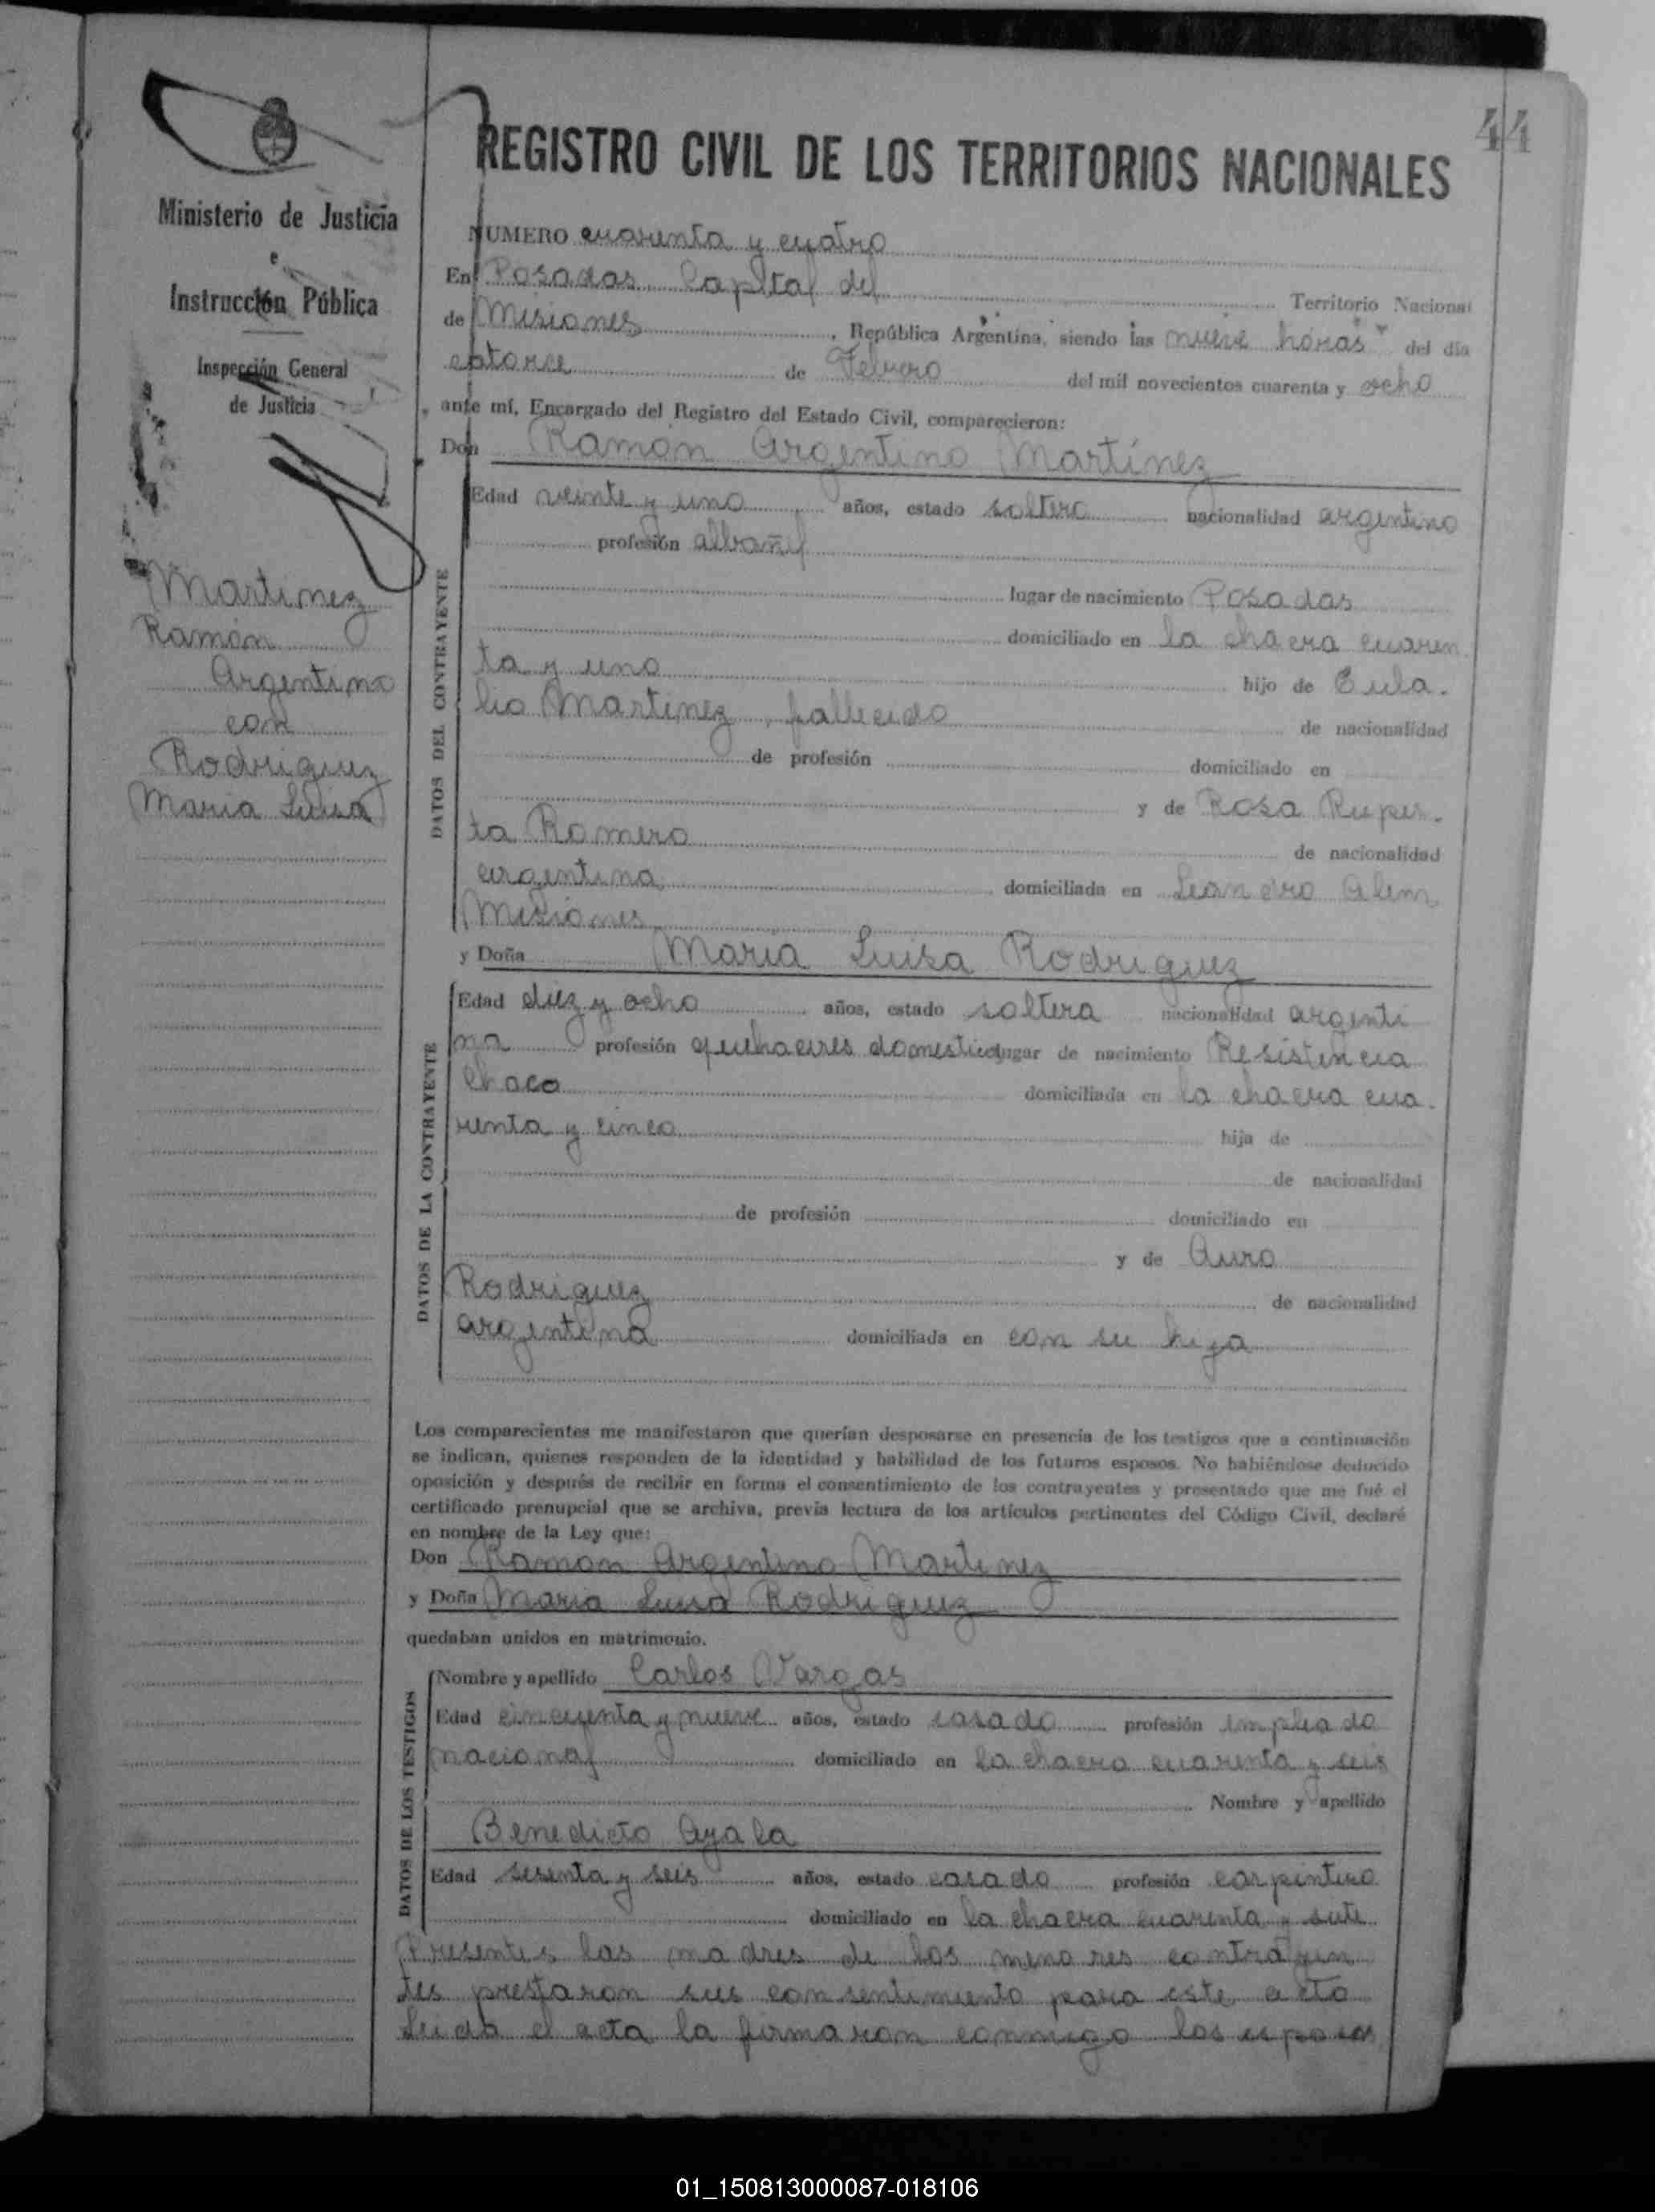 44
REGISTRO CIVIL DE LOS TERRITORIOS NACIONALES
Ministerio de Justicia
e
Instrucción Pública
Inspección General
de Justicia
Martinez
Ramón
Argentino
con
Rodriguez
Maria Luisa
NUMERO cuarenta y cuatro
En Posadas Capital del Territorio Nacional
de Misiones, República Argentina, siendo las nueve horas del día
catorce de Febrero del mil novecientos cuarenta y ocho
, ante mí, Encargado del Registro del Estado Civil, comparecieron:
Don Ramón Argentino Martínez
DATOS DEL CONTRAYENTE
Edad veinte y uno años, estado soltero nacionalidad argentino
profesión albañil
lugar de nacimiento Posadas
domiciliado en la chacra cuaren
ta y uno hijo de Eula-
lio Martinez, fallecido de nacionalidad
de profesión domiciliado en
y de Rosa Ruper-
ta Romero de nacionalidad
argentina domiciliada en Leandro Alem
Misiones
y Doña Maria Luisa Rodriguez
DATOS DE LA CONTRAYENTE
Edad diez y ocho años, estado soltera nacionalidad argenti
na profesión quehaceres domesticos lugar de nacimiento Resistencia
Chaco domiciliada en la chacra cua-
renta y cinco hija de
de nacionalidad
de profesión domiciliado en
y de Aura
Rodriguez de nacionalidad
argentina domiciliada en con su hija
Los comparecientes me manifestaron que querían desposarse en presencia de los testigos que a continuación
se indican, quienes responden de la identidad y habilidad de los futuros esposos. No habiéndose deducido
oposición y después de recibir en forma el consentimiento de los contrayentes y presentado que me fué el
certificado prenupcial que se archiva, previa lectura de los artículos pertinentes del Código Civil, declaré
en nombre de la Ley que:
Don Ramon Argentino Martinez
y Doña Maria Luisa Rodriguez
quedaban unidos en matrimonio.
DATOS DE LOS TESTIGOS
Nombre y apellido Carlos Vargas
Edad cincuenta y nueve años, estado casado profesión empleado
nacional domiciliado en la chacra cuarenta y seis
Nombre y apellido
Benedicto Ayala
Edad sesenta y seis años, estado casado profesión carpintero
domiciliado en la chacra cuarenta y siete
Presentes las madres de los menores contrayen
tes prestaron sus consentimiento para este acto
Leida el acta la firmaron conmigo los esposos
01_150813000087-018106